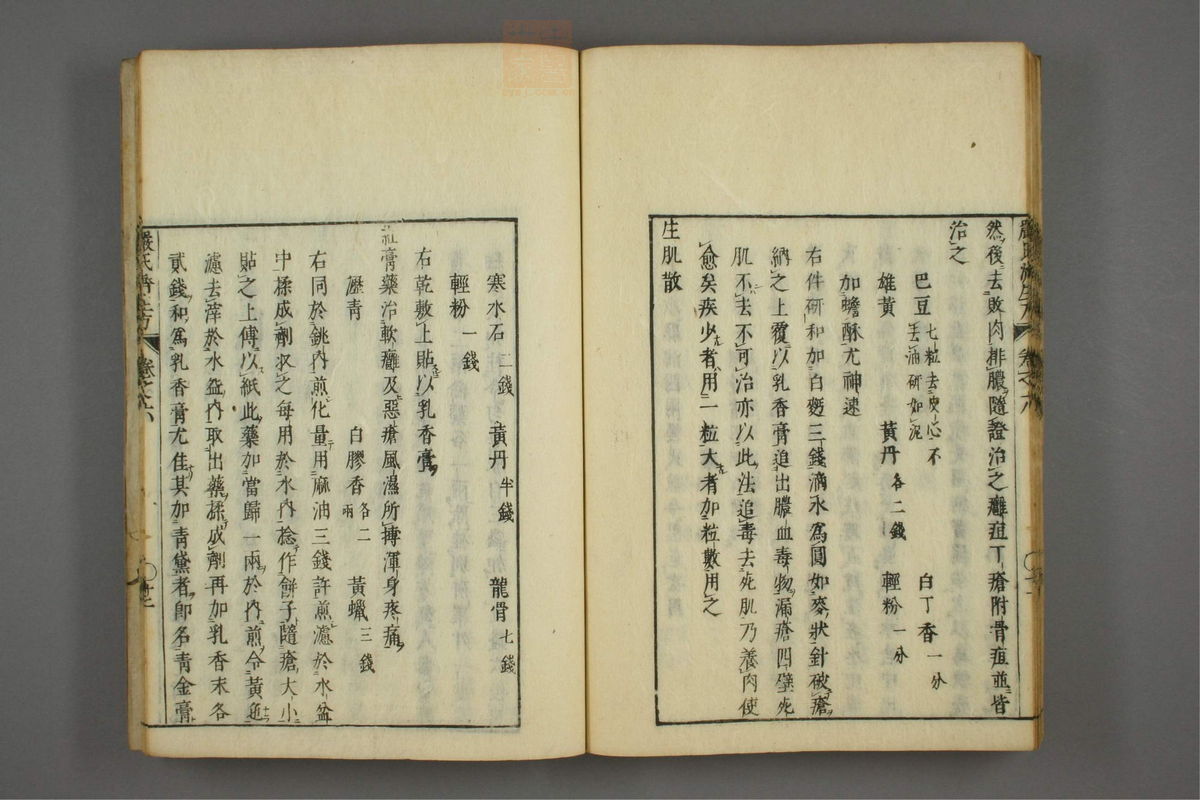 然後去敗肉排膿隨證治之癰疽丁瘡附骨疽並皆
治之
巴豆七粒去皮心不去油研如泥 白丁香一分
雄黃 黃丹各二錢 輕粉一分
加蟾酥尤神速
右件研和加白麪三錢滴水爲圓如麥狀針破瘡
納之上覆以乳香膏追出膿血毒物漏瘡四壁死
肌不去不可治亦以此法追毒去死肌乃養肉使
愈矣疾少者用一粒大者加粒數用之
生肌散
寒水石二錢 黃丹半錢 龍骨七錢
輕粉一錢
右乾敷上貼以乳香膏
紅膏藥治軟癰及惡瘡風濕所搏渾身疼痛
瀝青 白膠香各二兩 黃蠟三錢
右同於銚內煎化量用麻油三錢許煎濾於水盆
中揉成劑收之每用於水內捻作餅子隨瘡大小
貼之上傅以紙此藥加當歸一兩於內煎令黃色
濾去滓於水盆內取出藥揉成劑再加乳香末各
貳錢和爲乳香膏尤佳其加青黛者卽名青金膏
嚴氏濟生方 卷之六